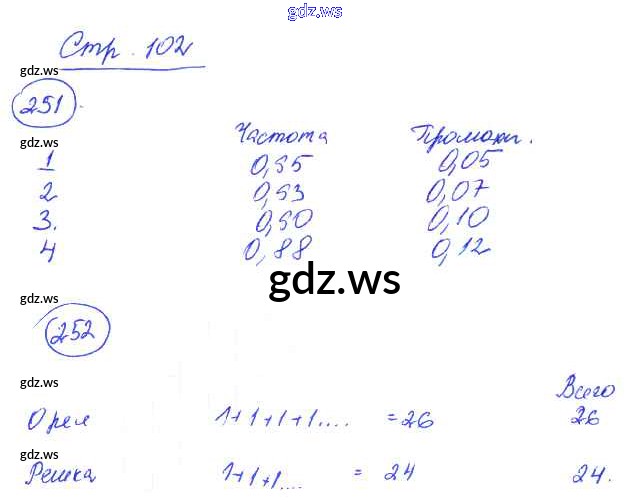 gdz.ws
Стр. 102
gdz.ws
251.
Частота Промахи.
1 0,95 0,05
gdz.ws
2 0,93 0,07
3. 0,90 0,10
4 0,88 0,12
gdz.ws
252
gdz.ws
Всего
Орел 1+1+1+1.... = 26 26
gdz.ws
Решка 1+1+1.... = 24 24.